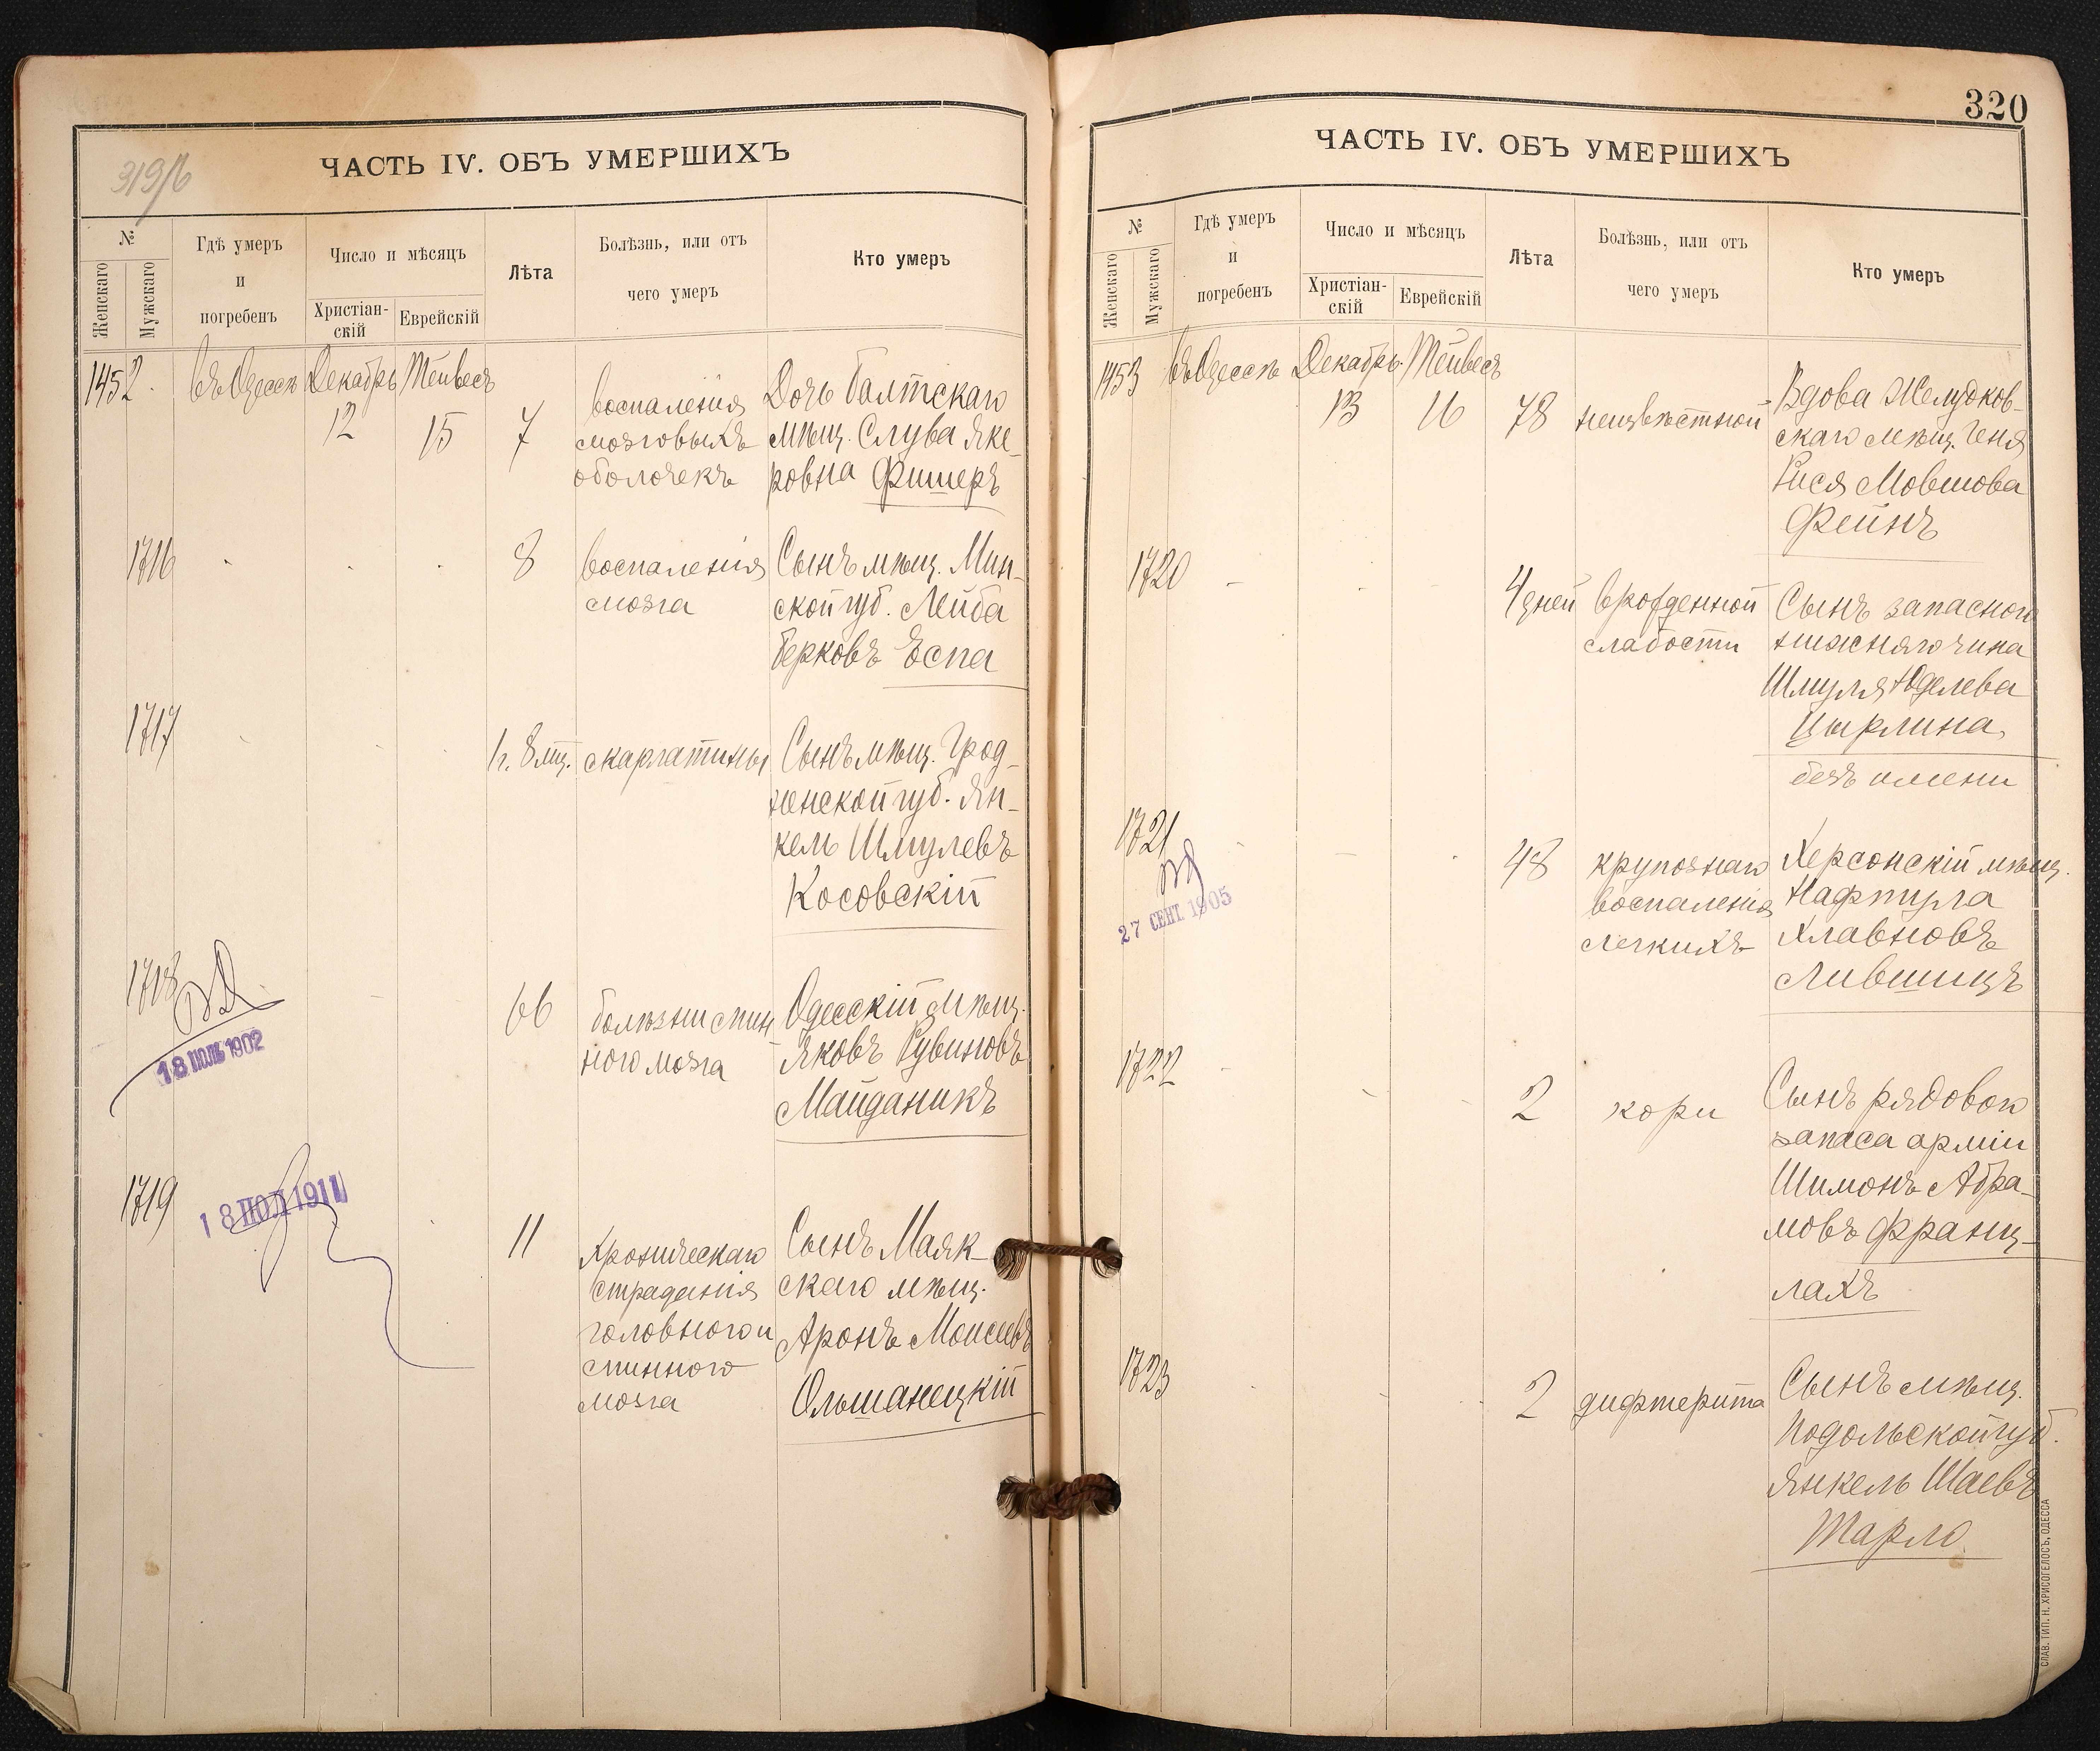 319/б
ЧАСТЬ IV. ОБЪ УМЕРШИХЪ
№
Женскаго
Мужскаго
Гдѣ умеръ
и
погребенъ
Число и мѣсяцъ
Христіан-
скій
Еврейскій
Лѣта
Болѣзнь, или отъ
чего умеръ
Кто умеръ
1452.
въ Одессѣ
Декабрь
12
Тейвесъ
15
7
воспаленія
мозговыхъ
оболочекъ
Дочь Балтскаго
мѣщ. Слува Яке-
ровна Фишеръ
1716
8
воспаленія
мозга
Сынъ мѣщ. Мин-
ской губ. Лейба
Берковъ Еспа
1717
1 г. 8 мц.
скарлатины
Сынъ мѣщ. Грод-
ненской губ. Ян-
кель Шмулевъ
Косовскій
1718
18 ІЮЛЬ 1902
66
болѣзни спин
ного мозга
Одесскій мѣщ.
Яковъ Рувиновъ
Майданикъ
1719
18 ІЮЛ 1911
11
Хроническаго
страданія
головного и
спинного
мозга
Сынъ Маяк-
скаго мѣщ.
Аронъ Моисеевъ
Ольшанецкій
320
ЧАСТЬ IV. ОБЪ УМЕРШИХЪ
№
Женскаго
Мужскаго
Гдѣ умеръ
и
погребенъ
Число и мѣсяцъ
Христіан-
скій
Еврейскій
Лѣта
Болѣзнь, или отъ
чего умеръ
Кто умеръ
1453
въ Одессѣ
Декабрь
13
Тейвесъ
16
78
неизвѣстной
Вдова Желудков-
скаго мѣщ. Геня
Рися Мовшова
Фейнъ
1720
4 дней
врожденной
слабости
Сынъ запасного
нижняго чина
Шмуля Юделева
Цырлина,
безъ имени
1721
27 СЕНТ. 1905
48
крупознаго
воспаленія
легкихъ
Херсонскій мѣщ.
Нафтула
Хлавновъ
Лившицъ
1722
2
кори
Сынъ рядового
запаса арміи
Шимонъ Абра-
мовъ Франц-
лахъ
1723
2
дифтерита
Сынъ мѣщ.
Подольской губ.
Янкель Шаевъ
Тарло
СЛАВ. ТИП. Н. ХРИСОГЕЛОСЪ, ОДЕССА